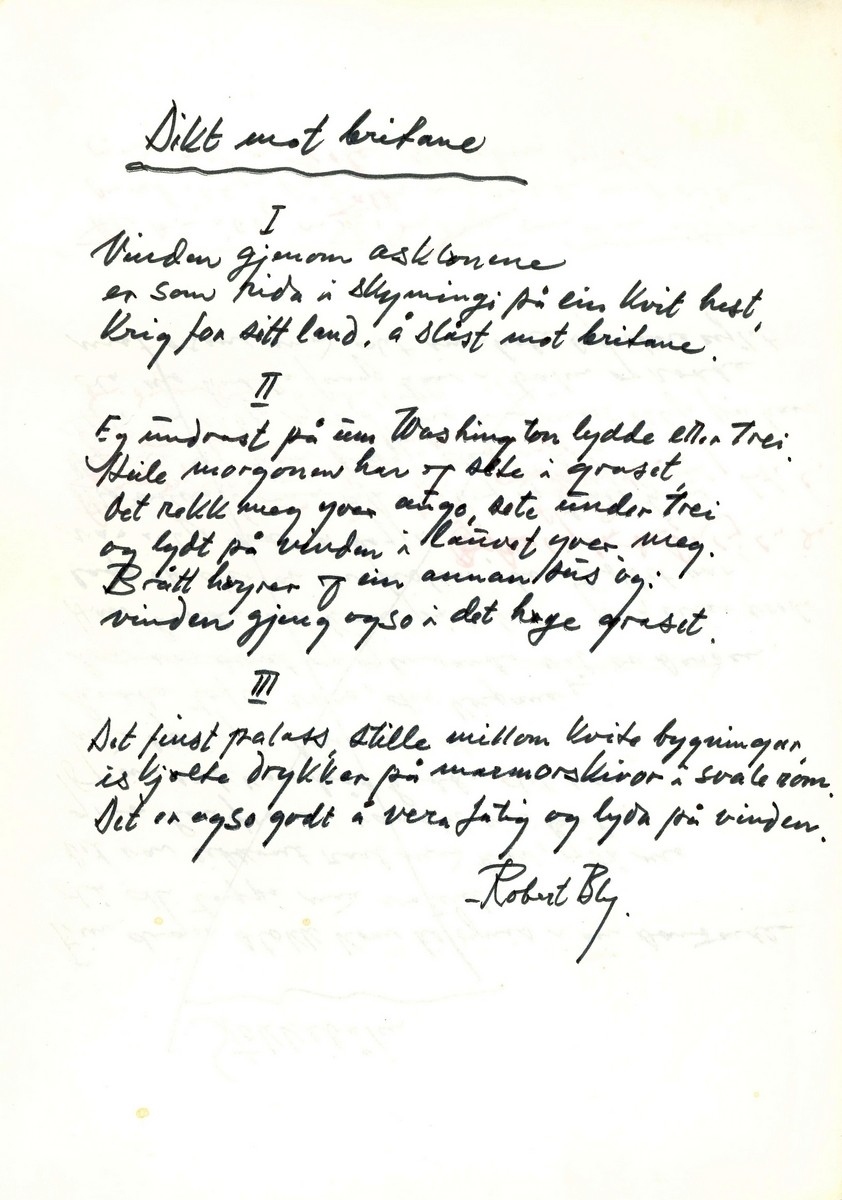 Dikt mot britane
I
Vinden gjenom askkronene
er som rida i skymingi på ein kvit hest,
Krig for sitt land, å slåst mot britane.
II
Eg undrast på um Washington lydde etter trei.
Heile morgonen har eg sete i graset,
det rekk meg yver augo, sete under trei
og lydt på vinden i lauvet yver meg.
Brått høyrer eg ein annan sus òg:
vinden gjeng også i det høge graset.
III
Det finst palass, stille millom kvite bygningar,
iskjølte drykker på marmorskivor i svale rom.
Det er også godt å vera fatig og lyda på vinden.
– Robert Bly.